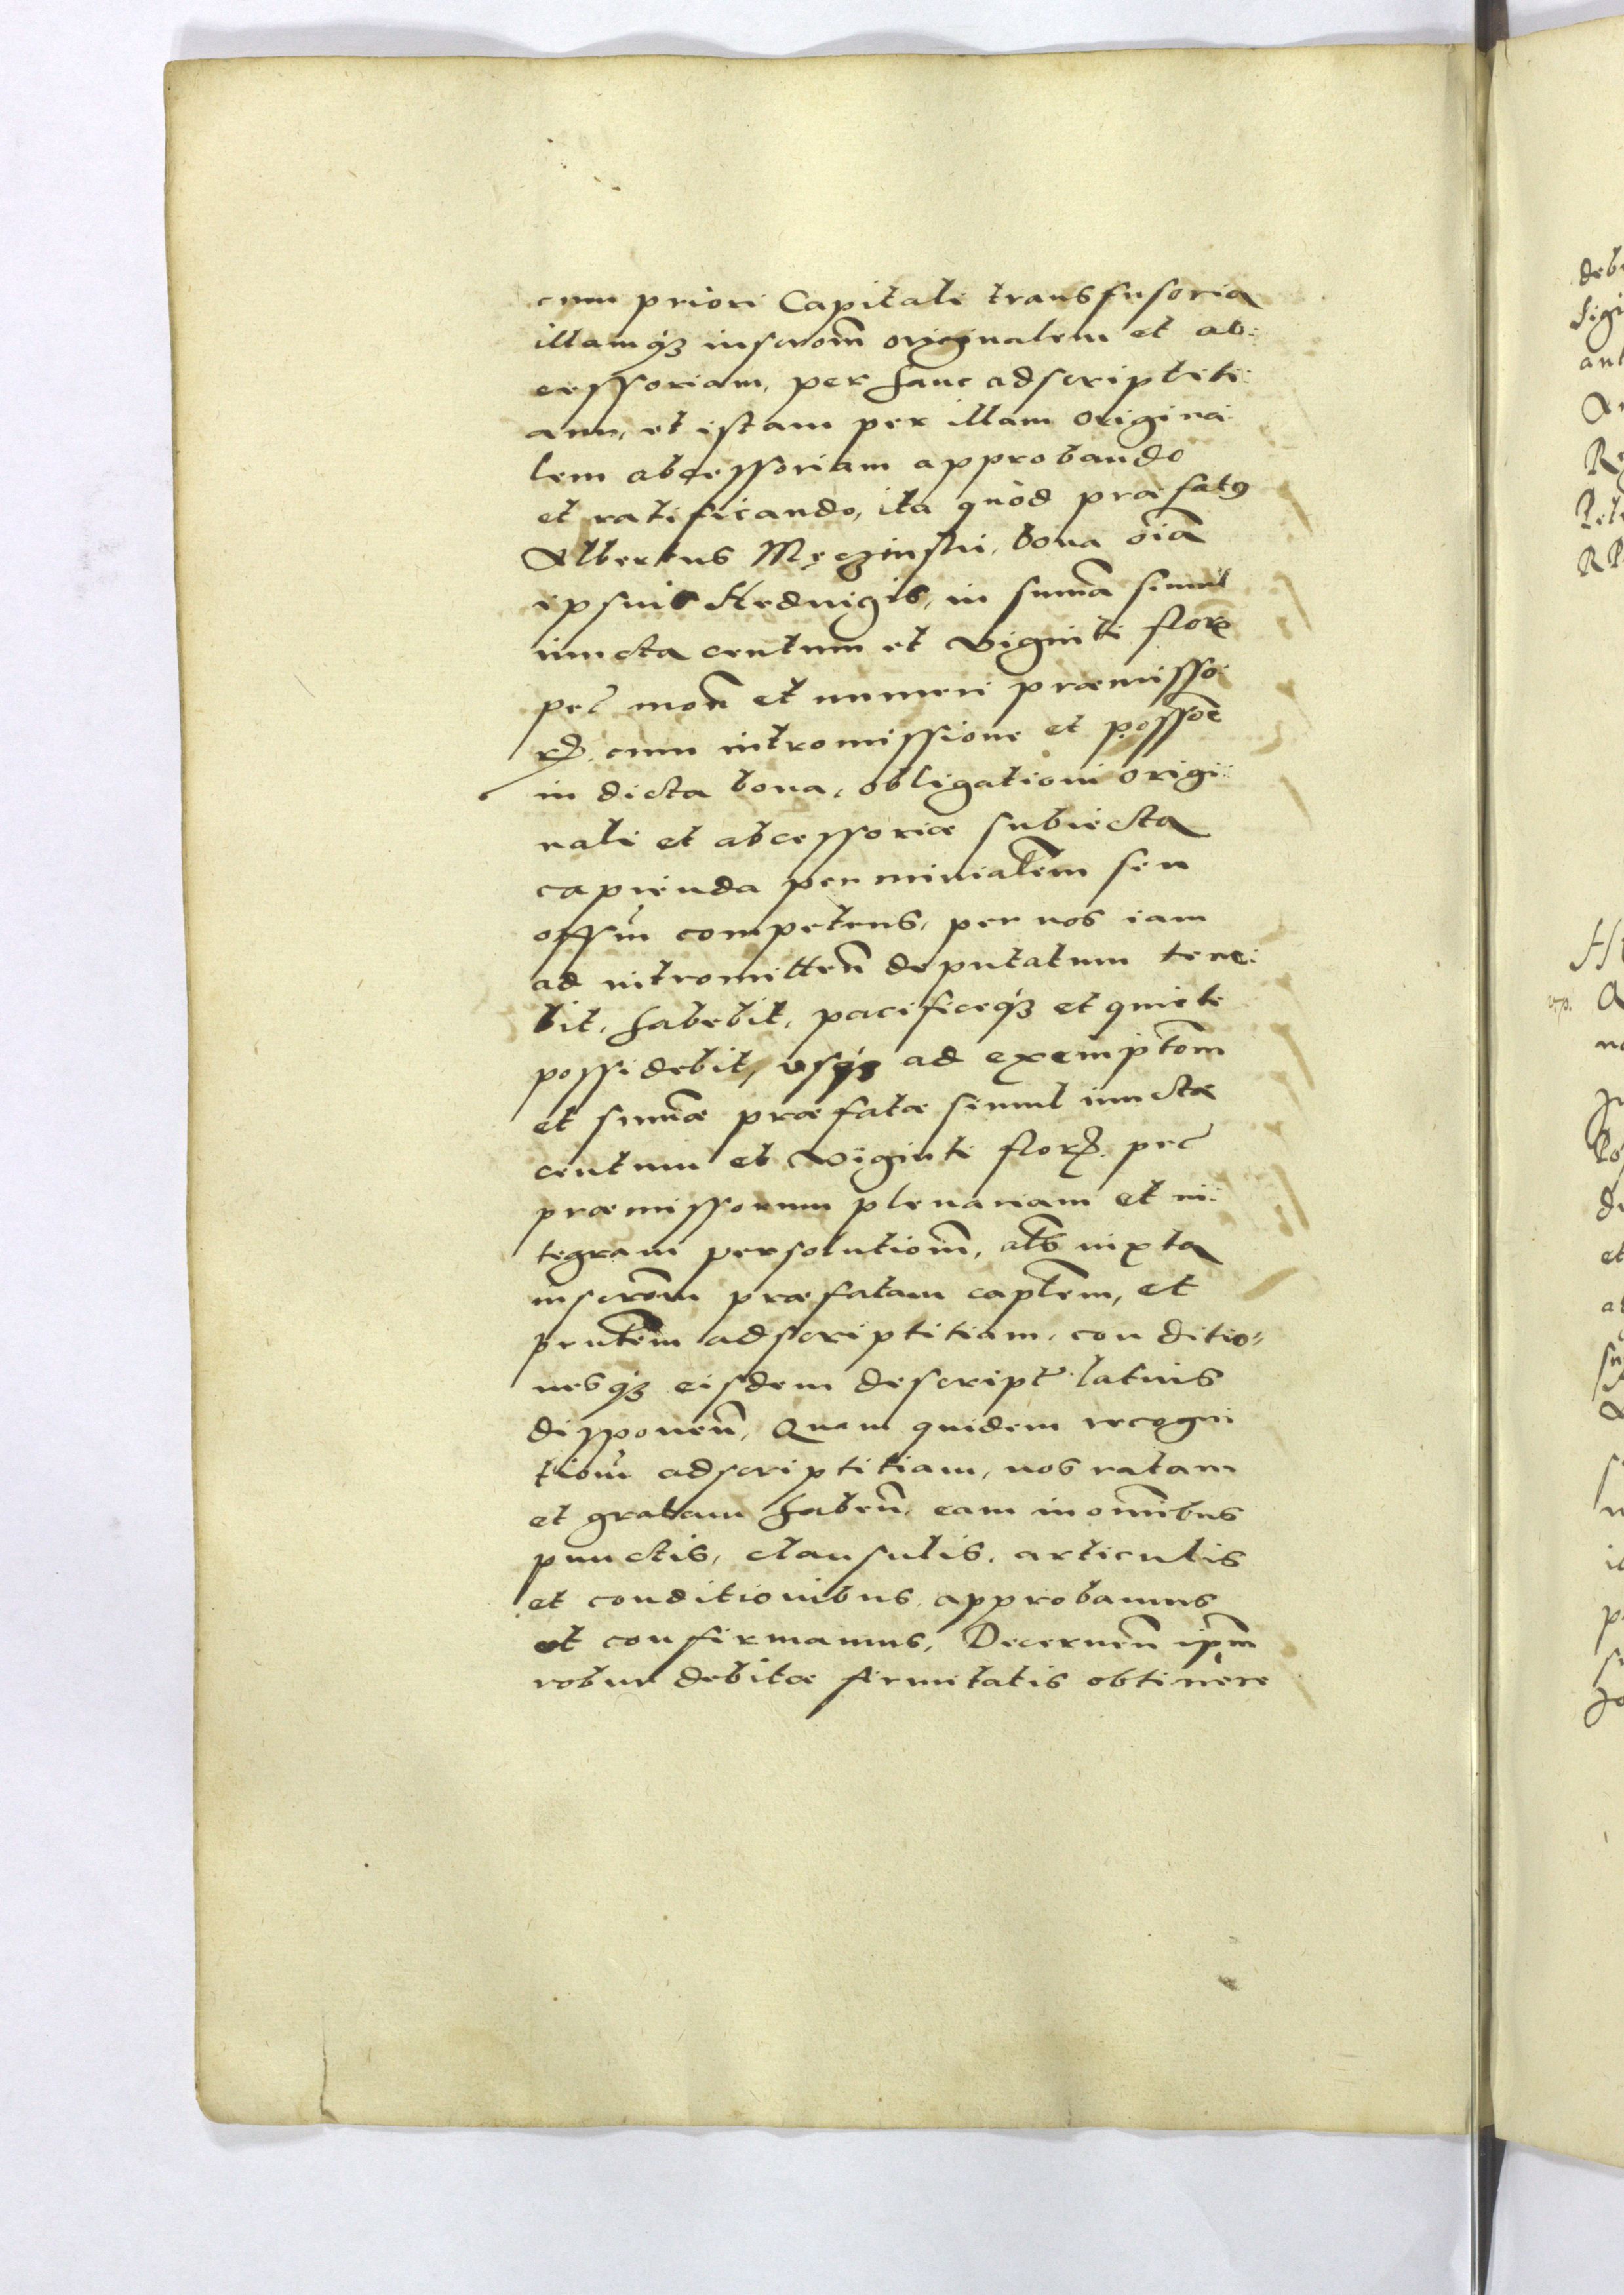 cum priori Capitali transfusoria
illamq́ꝫ inscrom̄ originalem et ab:
cessoriam, per hanc adscriptiti:
am, et istam per illam origina:
lem abcessoriam approbando
et ratificando, ita quòd præfatꝰ
Albertus Męczinski, bona oīa
ipsius Hedvigis, in sum̄a simul
iuncta centum et viginti florꝭ
pec̄ mon̄ et numeri præmisso:
rꝭ, cum intromissione et possoē
in dicta bona, obligationi origi:
nali et abcessoriæ subiecta
capienda per mīnialem seu
offm̄ competens, per nos iam
ad intromitten̄ deputatum tene:
bit, habebit, pacificeq́ꝫ et quiete
possidebit, usq́ꝫ ad exemptom̄
et sum̄æ præfatæ simul iunctæ
centum et viginti florꝭ pec̄
præmissorum plenariam et in:
tegram persolutiom̄, als̄ iuxta
inscrom̄ præfatam captlem̄, et
prntem̄ adscriptitiam, conditio=
nesq́ꝫ eisdem descript̄ latius
disponen̄, Quam quidem recogni
tiom̄ adscriptitiam, nos ratam
et gratam haben̄, eam in om̄ibus
punctis, clausulis, articulis
et conditionibus, approbamus
et confirmamus, Decernen̄ ipm̄
robur debitæ firmitatis obtinere